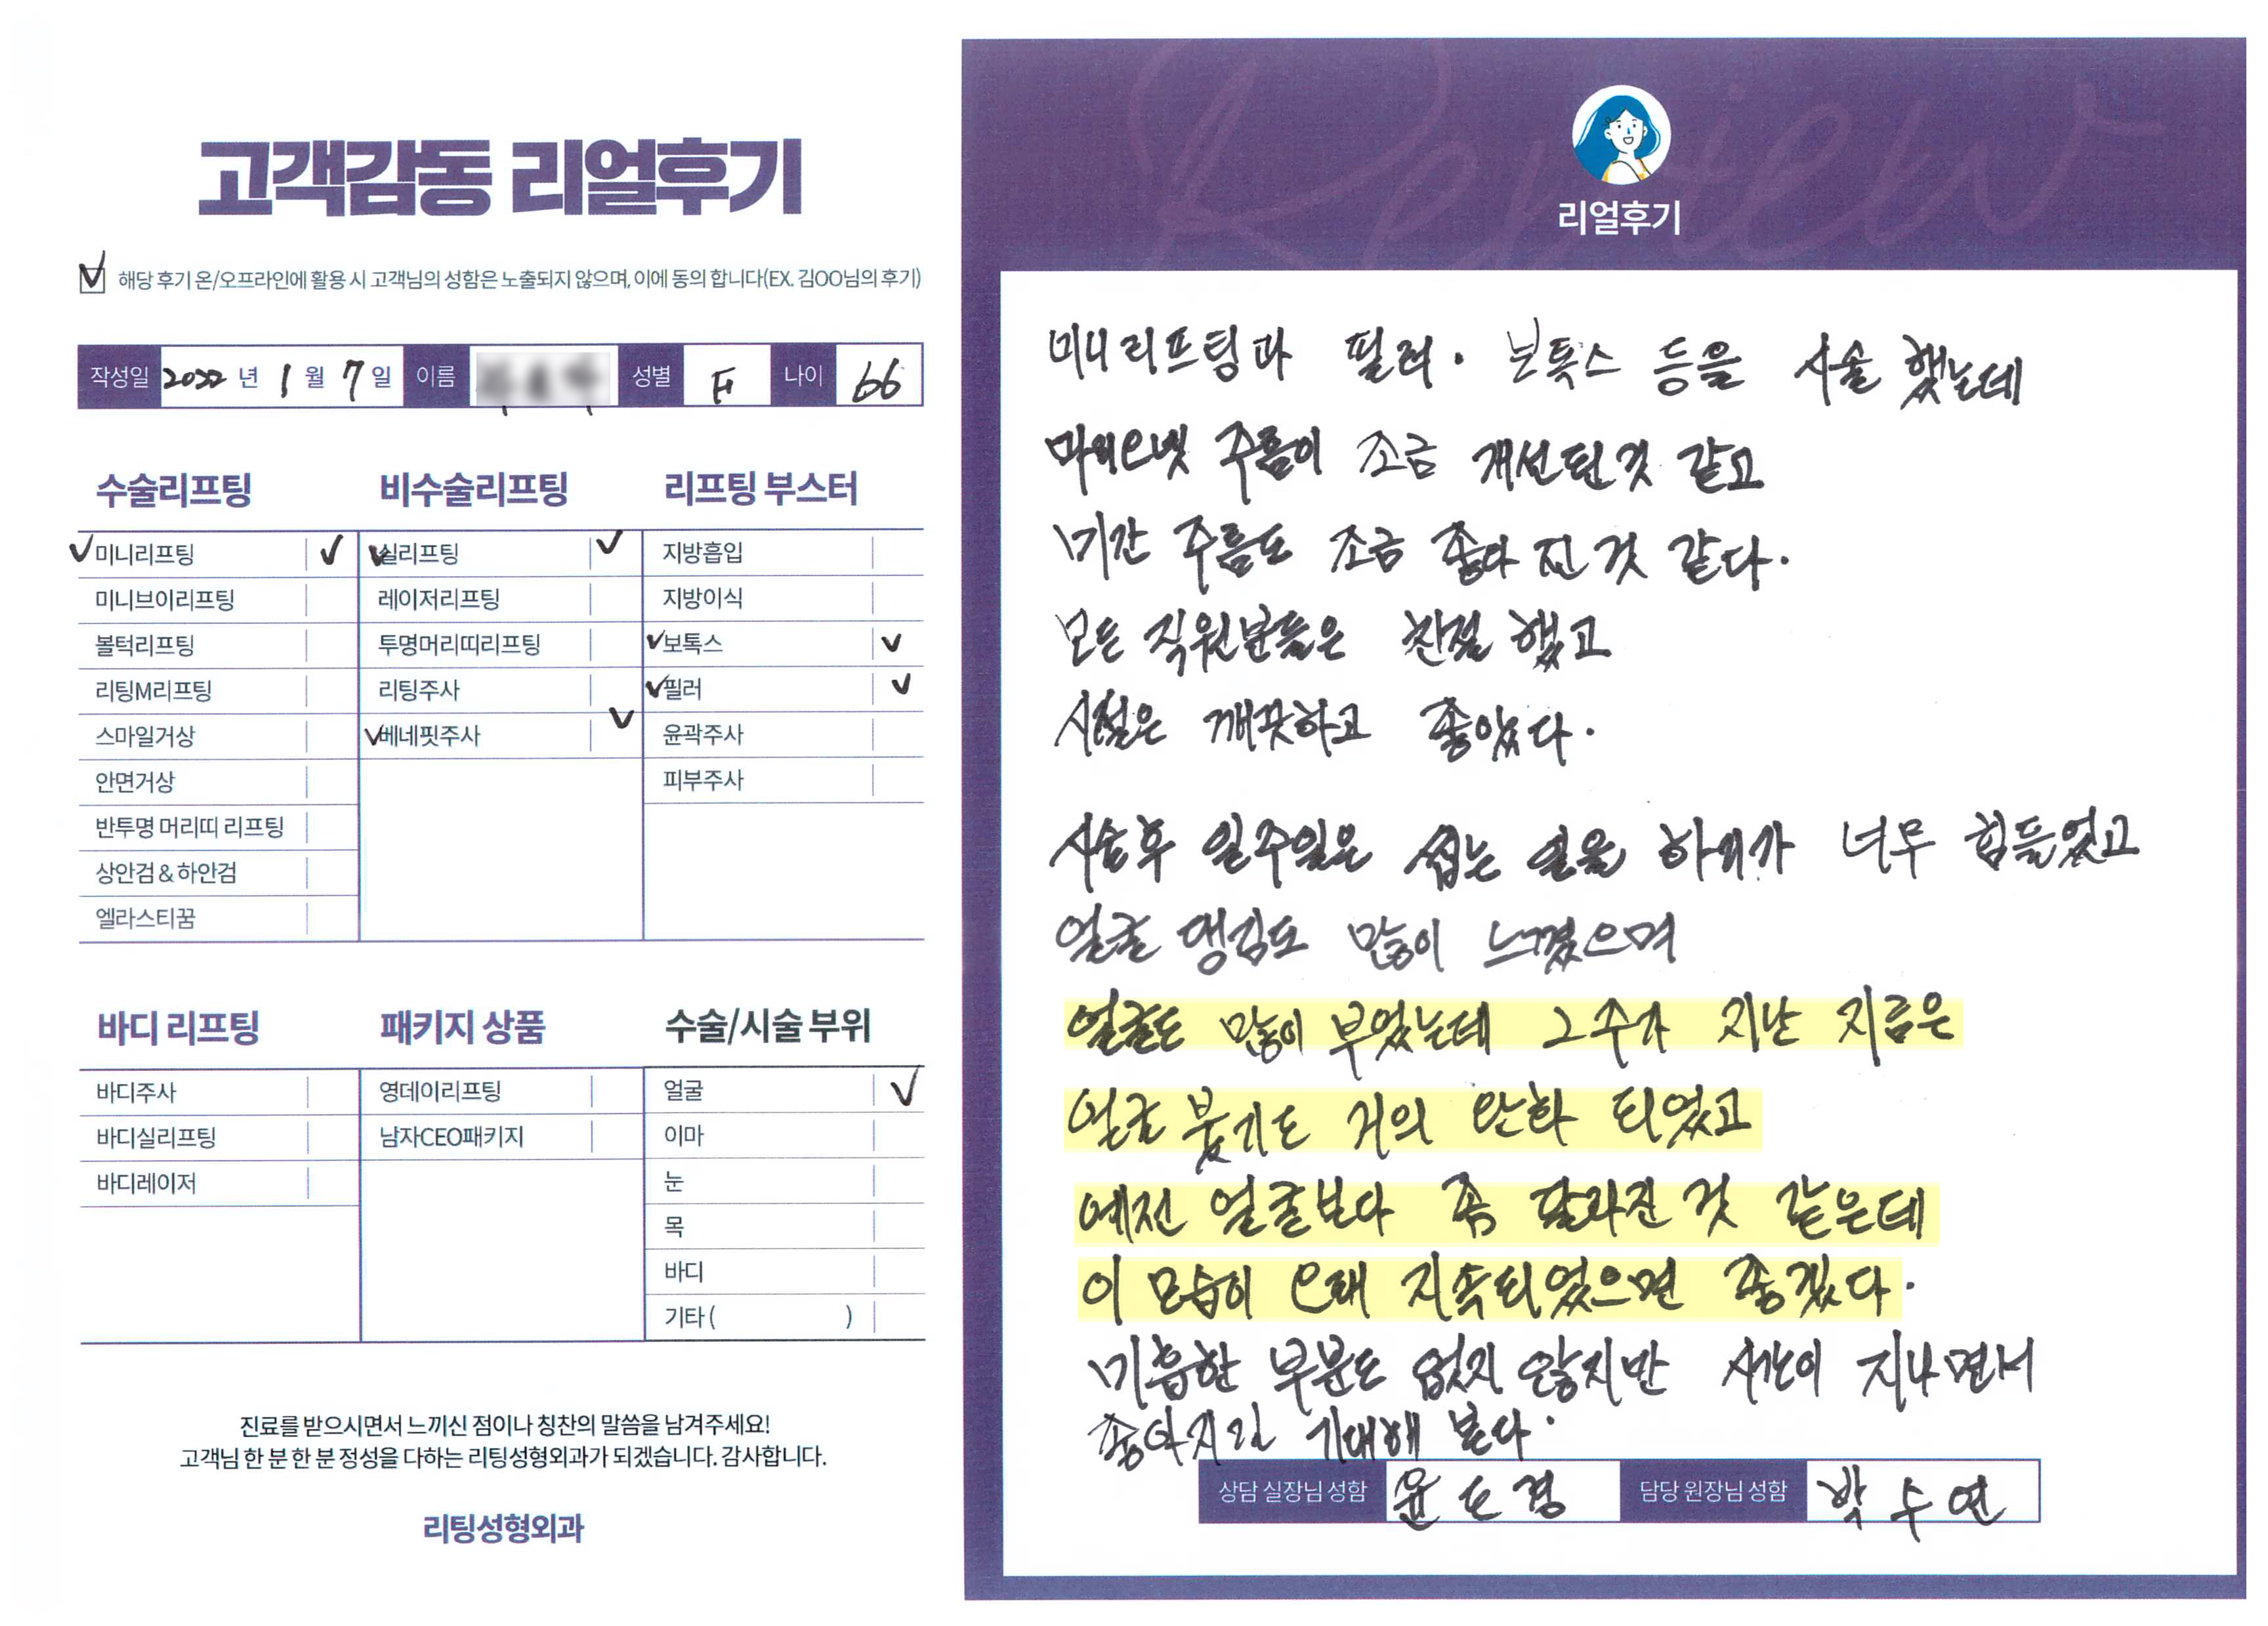 고객감동 리얼후기
해당 후기 온/오프라인에 활용 시 고객님의 성함은 노출되지 않으며, 이에 동의 합니다(EX. 김OO님의 후기)
작성일 2022 년 1 월 7 일 이름 성별 F 나이 66
수술리프팅
미니리프팅
미니브이리프팅
볼턱리프팅
리팅M리프팅
스마일거상
안면거상
반투명 머리띠 리프팅
상안검 & 하안검
엘라스티꿈
비수술리프팅
실리프팅
레이저리프팅
투명머리띠리프팅
리팅주사
베네핏주사
리프팅 부스터
지방흡입
지방이식
보톡스
필러
윤곽주사
피부주사
바디 리프팅
바디주사
바디실리프팅
바디레이저
패키지 상품
영데이리프팅
남자CEO패키지
수술/시술 부위
얼굴
이마
눈
목
바디
기타 ( )
진료를 받으시면서 느끼신 점이나 칭찬의 말씀을 남겨주세요!
고객님 한 분 한 분 정성을 다하는 리팅성형외과가 되겠습니다. 감사합니다.
리팅성형외과
Review
리얼후기
미니리프팅과 필러. 보톡스 등을 시술 했는데
마리오넷 주름이 조금 개선된것 같고
미간 주름도 조금 좋아 진 것 같다.
모든 직원분들은 친절 했고
시설은 깨끗하고 좋았다.
시술후 일주일은 씹는 일을 하기가 너무 힘들었고
얼굴 댕김도 많이 느꼈으며
얼굴도 많이 부었는데 2주가 지난 지금은
얼굴 붓기도 거의 완화 되었고
예전 얼굴보다 좀 달라진 것 같은데
이 모습이 오래 지속되었으면 좋겠다.
미흡한 부분도 없지 않지만 시간이 지나면서
좋아지길 기대해 본다.
상담 실장님 성함 윤도경 담당 원장님 성함 박수연